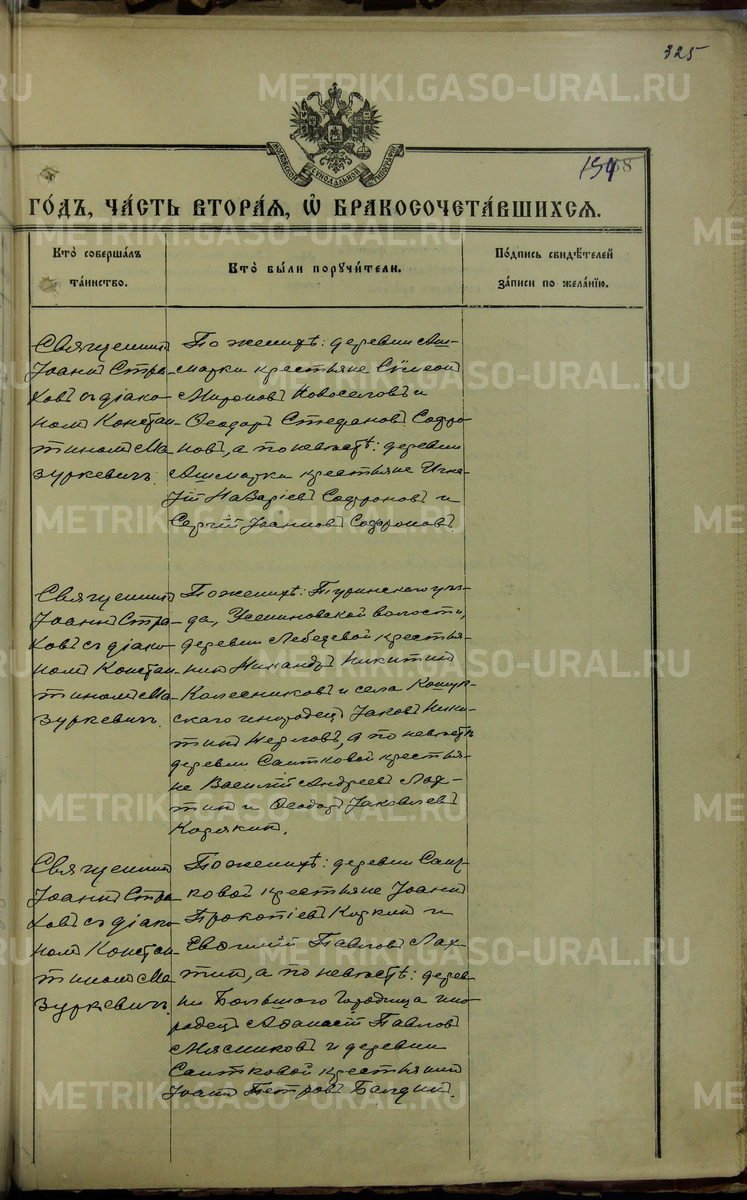 325
METRIKI.GASO-URAL.RU
МОСКОВСКОЙ СУНОДАЛЬНОЙ ТИПОГРАФІИ
154
ГО́ДЪ, ЧА́СТЬ ВТОРА́Я, Ѡ҆ БРАКОСОЧЕТА́ВШИХСЯ.
Кто̀ соверша́лъ
та́инство.
Кто̀ бы́ли поручи́тели.
По́дпись свидѣ́телей
за́писи по жела́нїю.
Священникъ
Іоаннъ Стра-
ховъ съ діако-
номъ Констан-
тиномъ Ма-
зуркевичъ.
По женихѣ: деревни Аш-
марки крестьяне Сѵмеонъ
Мироновъ Новоселовъ и
Ѳеодоръ Стефановъ Софро-
новъ, а по невѣстѣ: деревни
Ашмарки крестьяне Игна-
тій Назаріевъ Софроновъ и
Сергій Іоанновъ Софроновъ.
Священникъ
Іоаннъ Стра-
ховъ съ діако-
номъ Констан-
тиномъ Ма-
зуркевичъ.
По женихѣ: Туринскаго уѣз-
да, Усениновской волости,
деревни Лебедевой крестья-
нинъ Никандръ Никитинъ
Колесниковъ и села Кошук-
скаго инородецъ Іаковъ Ники-
тинъ а по невѣстѣ
деревни Саитковой крестья-
не Василій Андреевъ Лах-
тинъ и Ѳеодоръ Іаковлевъ
Корякинъ.
Священникъ
Іоаннъ Стра-
ховъ съ діако-
номъ Констан-
тиномъ Ма-
зуркевичъ.
По женихѣ: деревни Саит-
ковой крестьяне Іоаннъ
Прокопіевъ и
Евѳимій Павловъ Лах-
тинъ, а по невѣстѣ: дерев-
ни Большого Городища ино-
родецъ Аѳанасій Павловъ
Мясниковъ и деревни
Саитковой крестьянинъ
Іоаннъ Петровъ Балдинъ.